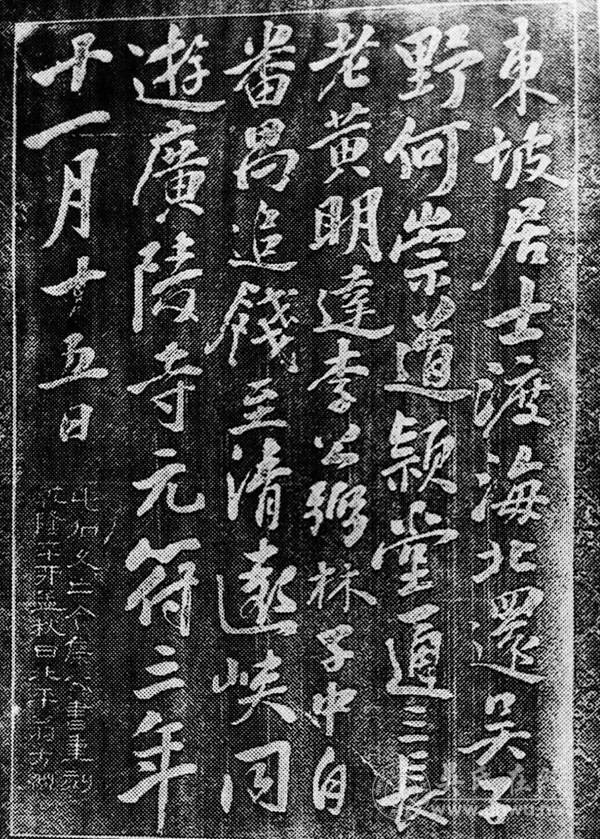 東坡居士渡海北還吳子
野何崇道穎堂通三長
老黃明達李公弼林子中自
番禺追餞至清遠峽同
遊廣陵寺元符三年
十一月十五日